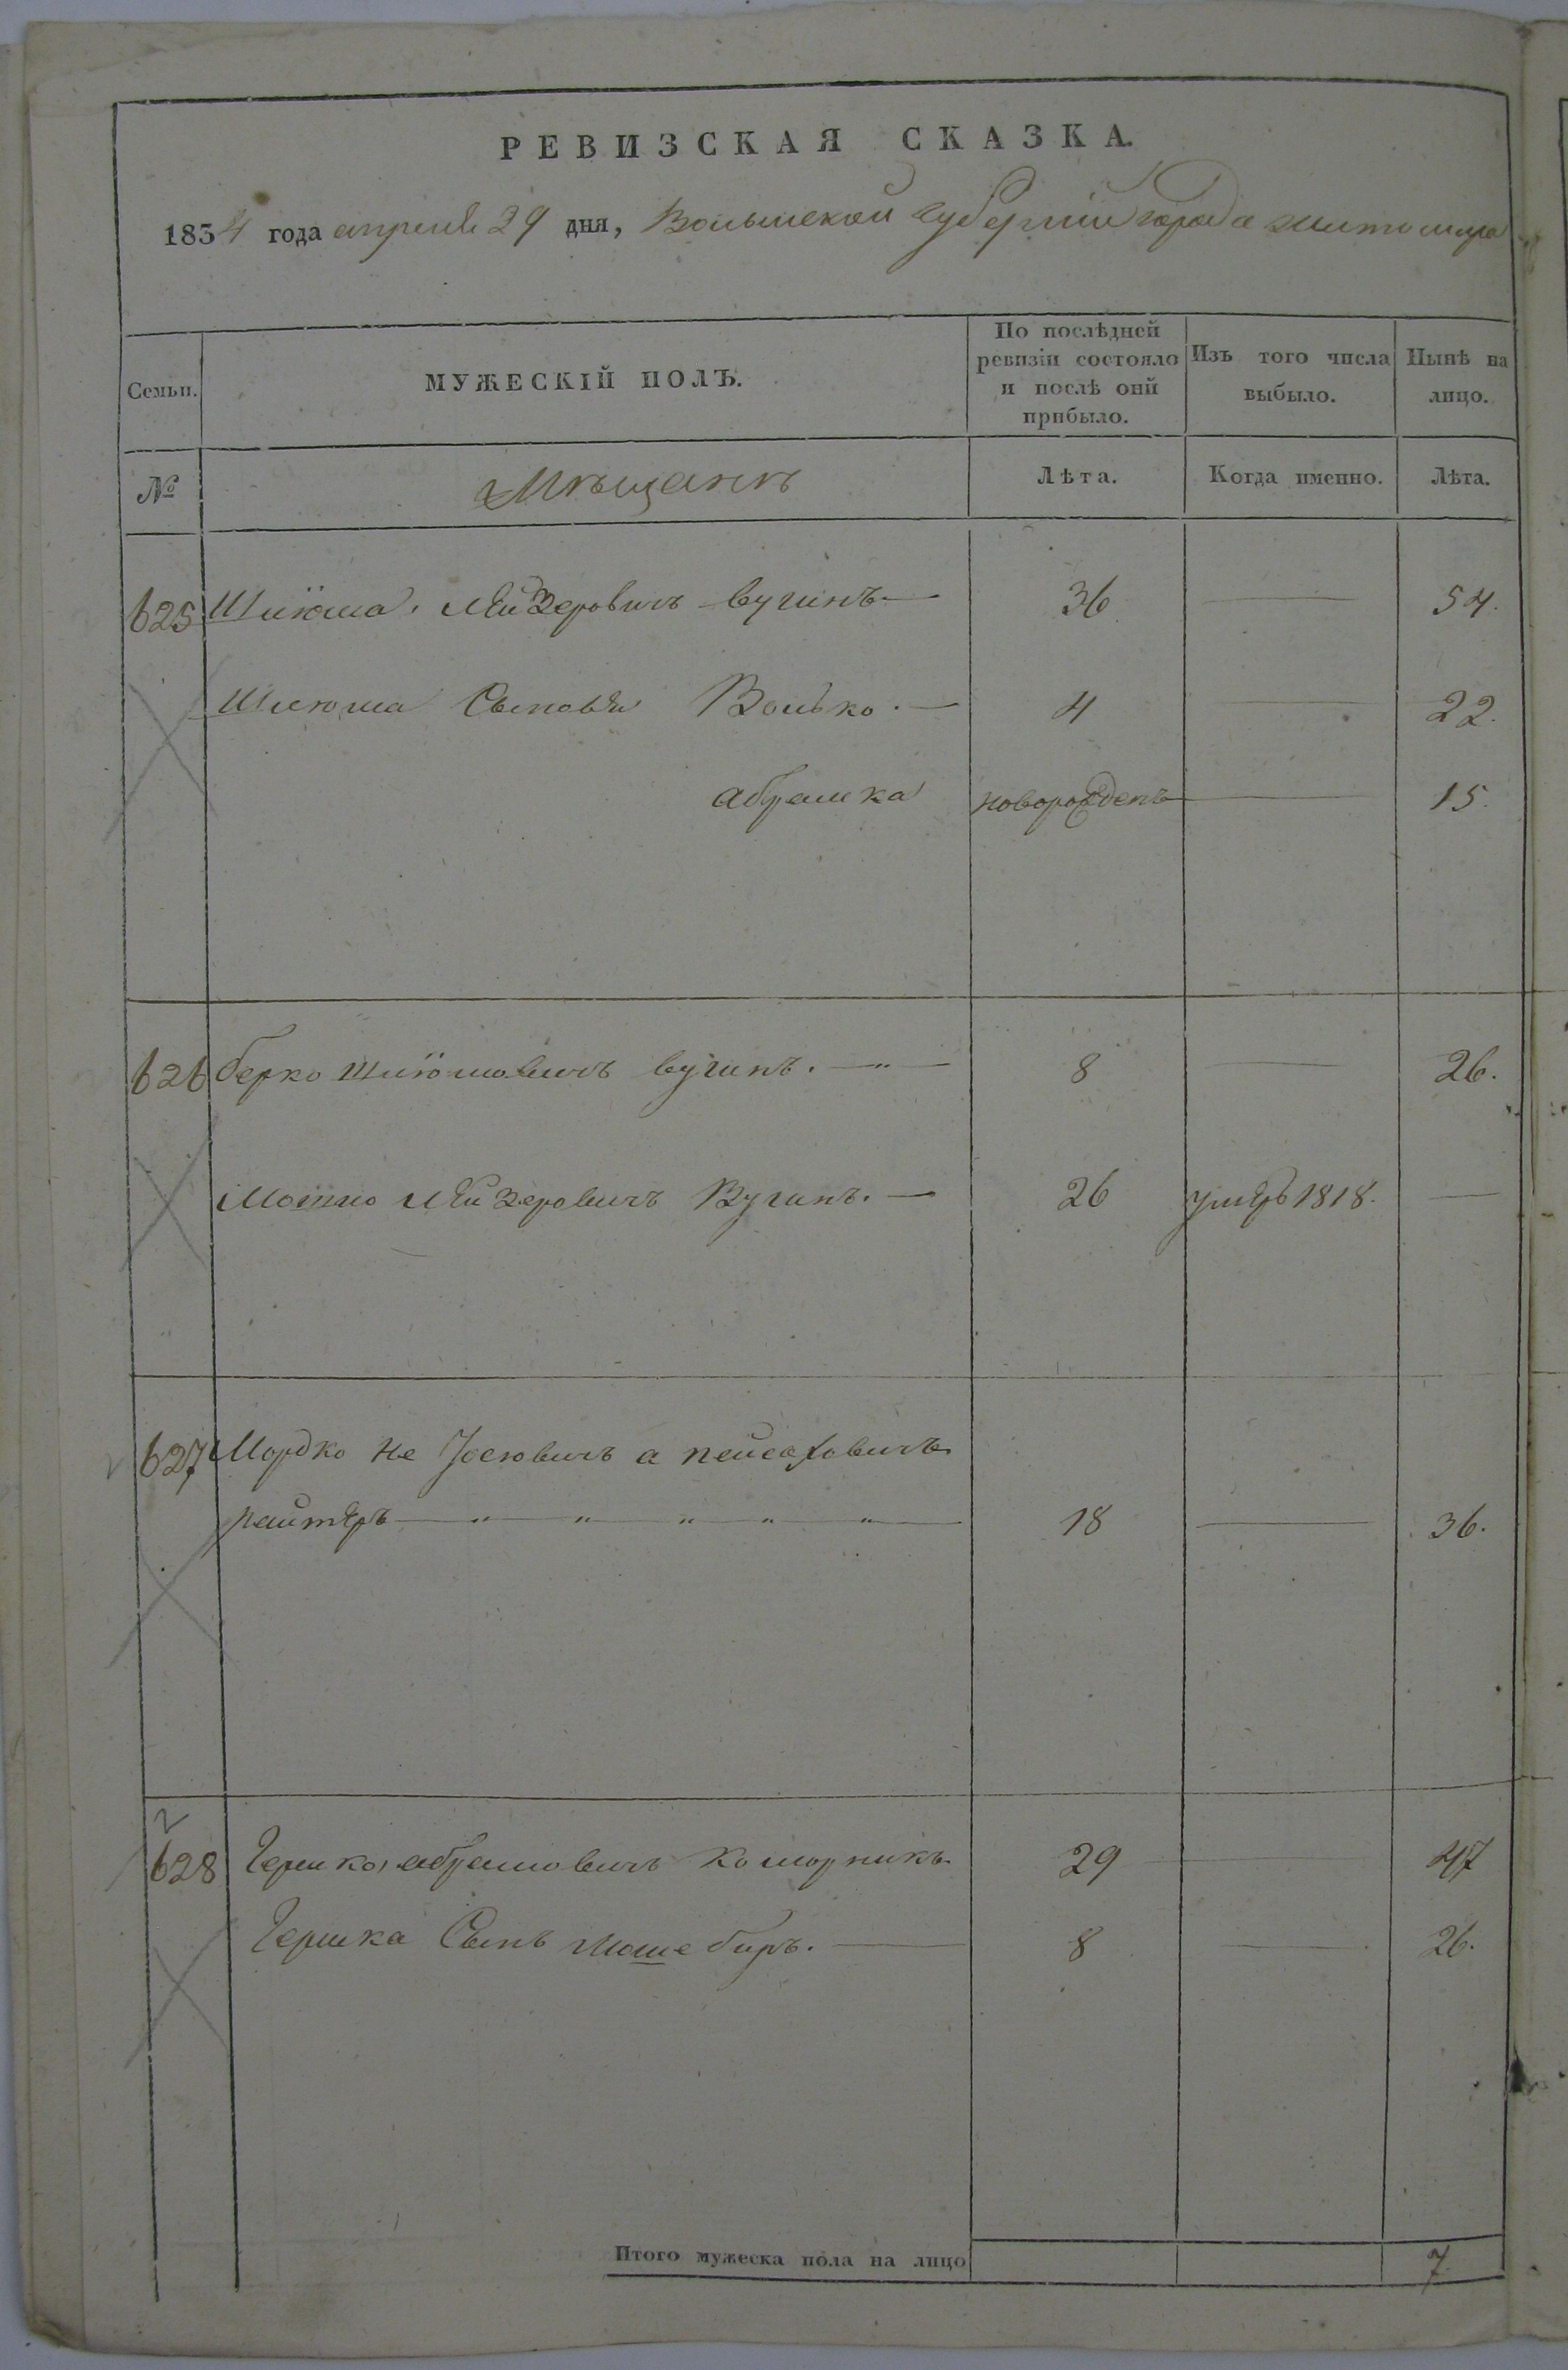 РЕВИЗСКАЯ СКАЗКА.
1834 года апреля 29 дня, Волынской губерніи города житомира
Семьи. МУЖЕСКІЙ ПОЛЪ. По послѣдней ревизіи состояло и послѣ оной прибыло. Изъ того числа выбыло. Нынѣ на лицо.
№ Мѣщанѣ Лѣта. Когда именно. Лѣта.
625 Шлюма Лейзеровичъ вугинъ 36 — 54.
Шлюма Сыновья Волько. — 4 — 22.
абрамка новорожденъ — 15.
626 берко Шлюмовичъ вугинъ. — 8 — 26.
Мошко Лейзеровичъ Вугинъ. — 26 умеръ 1818. —
627 Мордко не Іосьовичъ а пейсаховичъ
райтеръ — " — " — " — " — " — 18 — 36.
628 Гершко абрамовичъ Коморникъ 29 — 47
Гершка Сынъ Моше биръ. — 8 — 26.
Итого мужеска пола на лицо 7